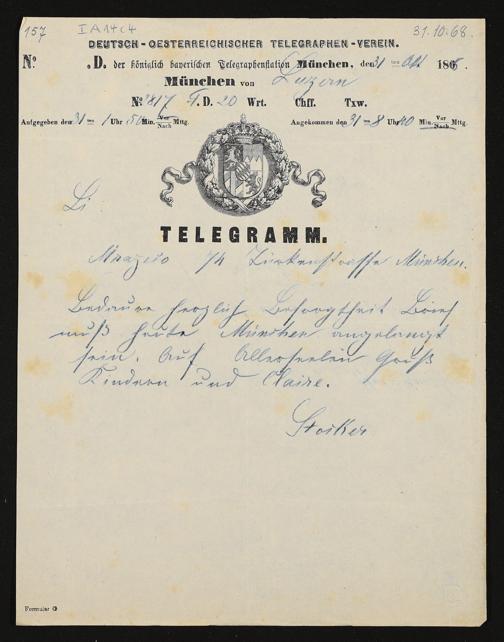 157 I A 14 c 4 31.10.68.
DEUTSCH-OESTERREICHISCHER TELEGRAPHEN-VEREIN.
No. .D. der königlich bayerischen Telegraphenstation München, den 31 ten Okt. 186
München von Luzern
No. 817 T.D. 20 Wrt. Chff. Txw.
Aufgegeben den 31 ten 1 Uhr 50 Min. Vor Nach Mttg. Angekommen den 31 - 8 Uhr 40 Min. Vor Nach Mttg.
Li
TELEGRAMM.
74 Türkenstrasse München.
Bedaure herzlich Besorgtheit Brief
muß heute München angelangt
sein. Auf Allerseelen Gruß
Kindern und Claire.
Stocker
Formular